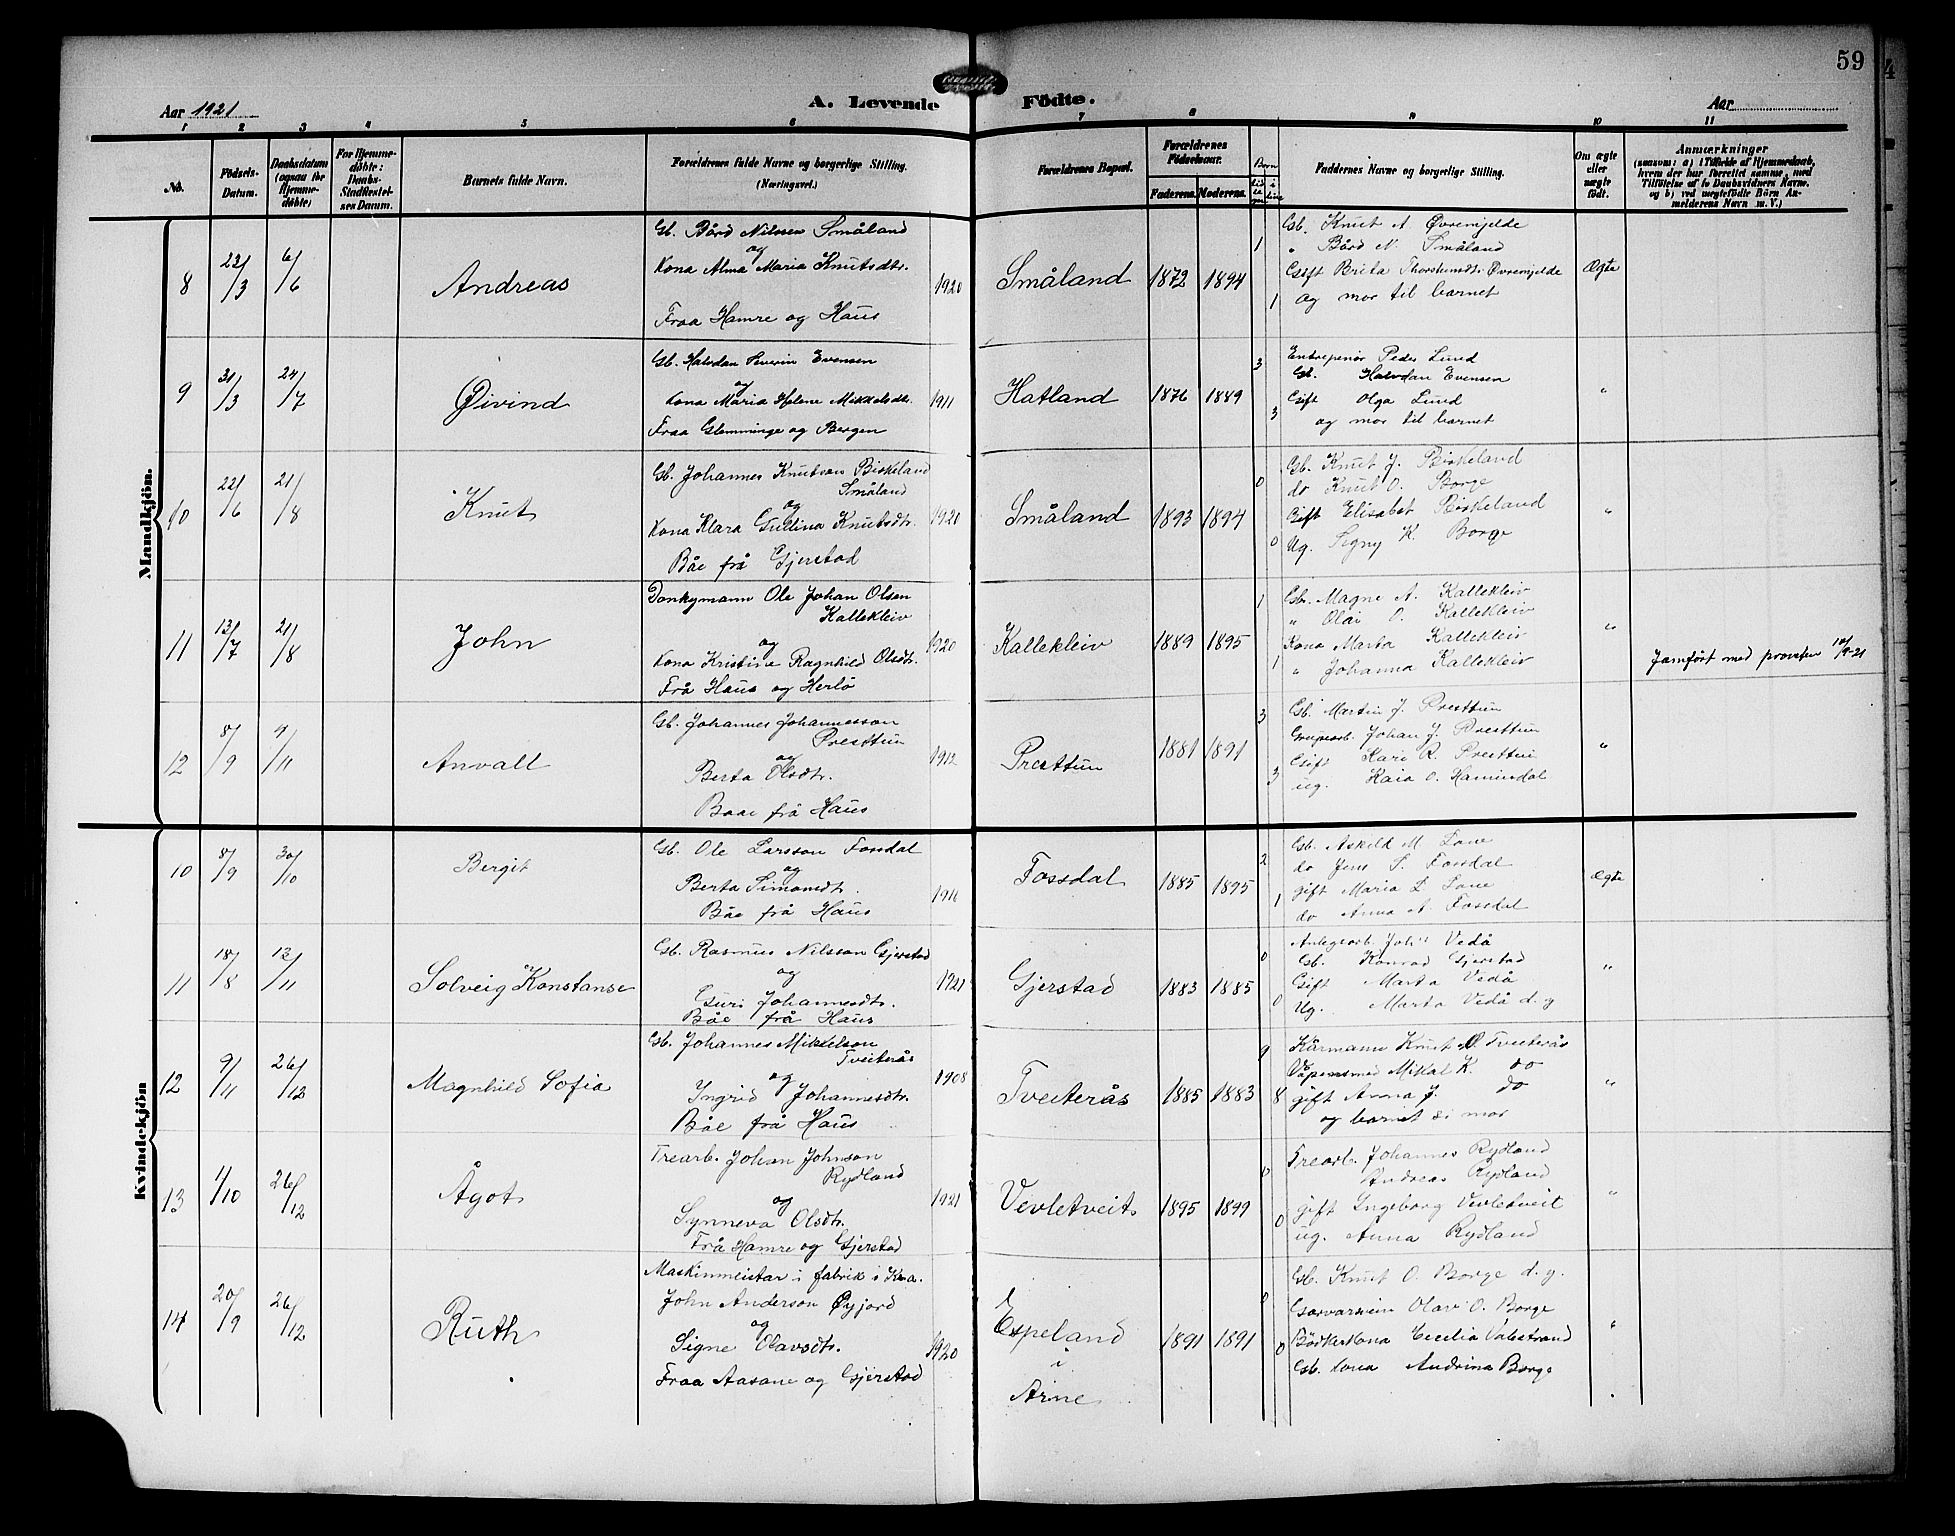 59
Aar 1921
A. Levende Födte.
Aar
1 2 3 4 5 6 7 8 9 10 11
No.
Födsels-Datum.
Daabsdatum (ogsaa for Hjemme-döbte)
For Hjemme-döbte: Daabs-Stadfæstel-ses Datum.
Barnets fulde Navn.
Forældrenes fulde Navne og borgerlige Stilling.
(Næringsvei.)
Forældrenes Bopæl.
Forældrenes Födselsaar.
Faderens. Moderens.
Faddernes Navne og borgerlige Stilling.
Om ægte eller uægte födt.
Anmærkninger
(saasom: a) i Tilfælde af Hjemmedaab,
hvem der har forrettet samme, med
Tilföielse af to Daabsvidners Navne,
og b) ved uægtefödte Börn An-
melderens Navn m. V.)
Mandkjön.
8 22/3 6/6 Andreas
Gb. Bård Nilssen Småland
og
Kona Alma Maria Knutsdtr.
Fraa Hamre og Haus
1920 Småland 1872 1894 1 1
Gb. Knut A Övremjelde
" Bård N. Småland
Gift Brita Thorsteinsdtr. Övremjelde
og mor til barnet
Ægte
9 31/3 24/7 Øivind
Gb. Halvdan Severin Evensen
og
Kona Maria Helene Mikkelsdtr.
Fraa Glemminge og Bergen
1911 Hatland 1876 1889 3 3
Entrepenör Peder Lund
Gb. Halvdan Evensen
Gift Olga Lund
og mor til barnet
"
10 22/6 21/8 Knut
Gb. Johannes Knutson Birkeland
Småland
og
Kona Klara Gullina Knutsdtr.
Båe frå Gjerstad
1920 Småland 1893 1894 0 0
Gb. Knut J. Birkeland
do Knut O. Borge
Gift Elisabet Birkeland
Ug. Signy K. Borge
"
11 13/7 21/8 John
Donkymann Ole Johan Olsen
Kallekleiv
og
Kona Kristine Ragnhild Olsdtr.
Frå Haus og Herlö
1920 Kallekleiv 1889 1895 1 1
Gbr. Magne A. Kallekleiv
" Olai O. Kallekleiv
Kona Marta Kallekleiv
" Johanna Kallekleiv
"
Jamfört med prousten 10/9-21
12 8/9 9/11 Anvall
Gb. Johannes Johannesson
Presttun
og
Berta Olsdtr.
Baae frå Haus
1912 Presttun 1881 1891 3 3
Gb. Martin J. Presttun
Johan J. Presttun
Gift Kari R. Presttun
ug. Kaia O. Hamindal
"
Kvindekjön
10 8/9 30/10 Bergit
Gb. Ole Larsson Fossdal
og
Berta Simonsdtr.
Båe frå Haus
1916 Fossdal 1885 1895 2 1
Gb. Askild M. Lone
do Jens S. Fossdal
gift Maria L. Lone
do Anna A. Fossdal
Ægte
11 18/8 13/11 Solveig Konstanse
Gb. Rasmus Nilsson Gjerstad
og
Guri Johannesdtr.
Båe frå Haus
1921 Gjerstad 1883 1885 0 0
Anlegsarb. Vedå
Gb. Konrad Gjerstad
Gift Marta Vedå
Ug. Marta Vedå d. y
"
12 9/11 26/12 Magnhild Sofia
Gb. Johannes Mikkelson
Tveiterås
og
Ingrid Johannesdtr.
Båe frå Haus
1908 Tveiterås 1885 1883 9 8
Kårmann Knut O. Tveiterås
Våpensmed Mikal K. do
gift Anna J. do
og barnet si mor
"
13 1/10 26/12 Ågot
Trearb. Johan Johnson
Rydland
og
Synneva Olsdtr.
Frå Hamre og Gjerstad
1921 Vevletveit 1895 1899 0 0
Trearb. Johannes Rydland
Andreas Rydland
gift Ingeborg Vevletveit
ug. Anna Rydland
"
14 20/9 26/12 Ruth
Maskinmeistar i fabrik i Kva.
John Anderson Öyjord
og
Signe Olavsdtr.
Fraa Aasane og Gjerstad
1920 Espeland
i
Arne
1891 1891 0 0
Gb. Knut O. Borge d. y.
Garvarsvein Olav O. Borge
Bödkerkona Cecilia Valestrand
Gb. kona Andrina Borge
"